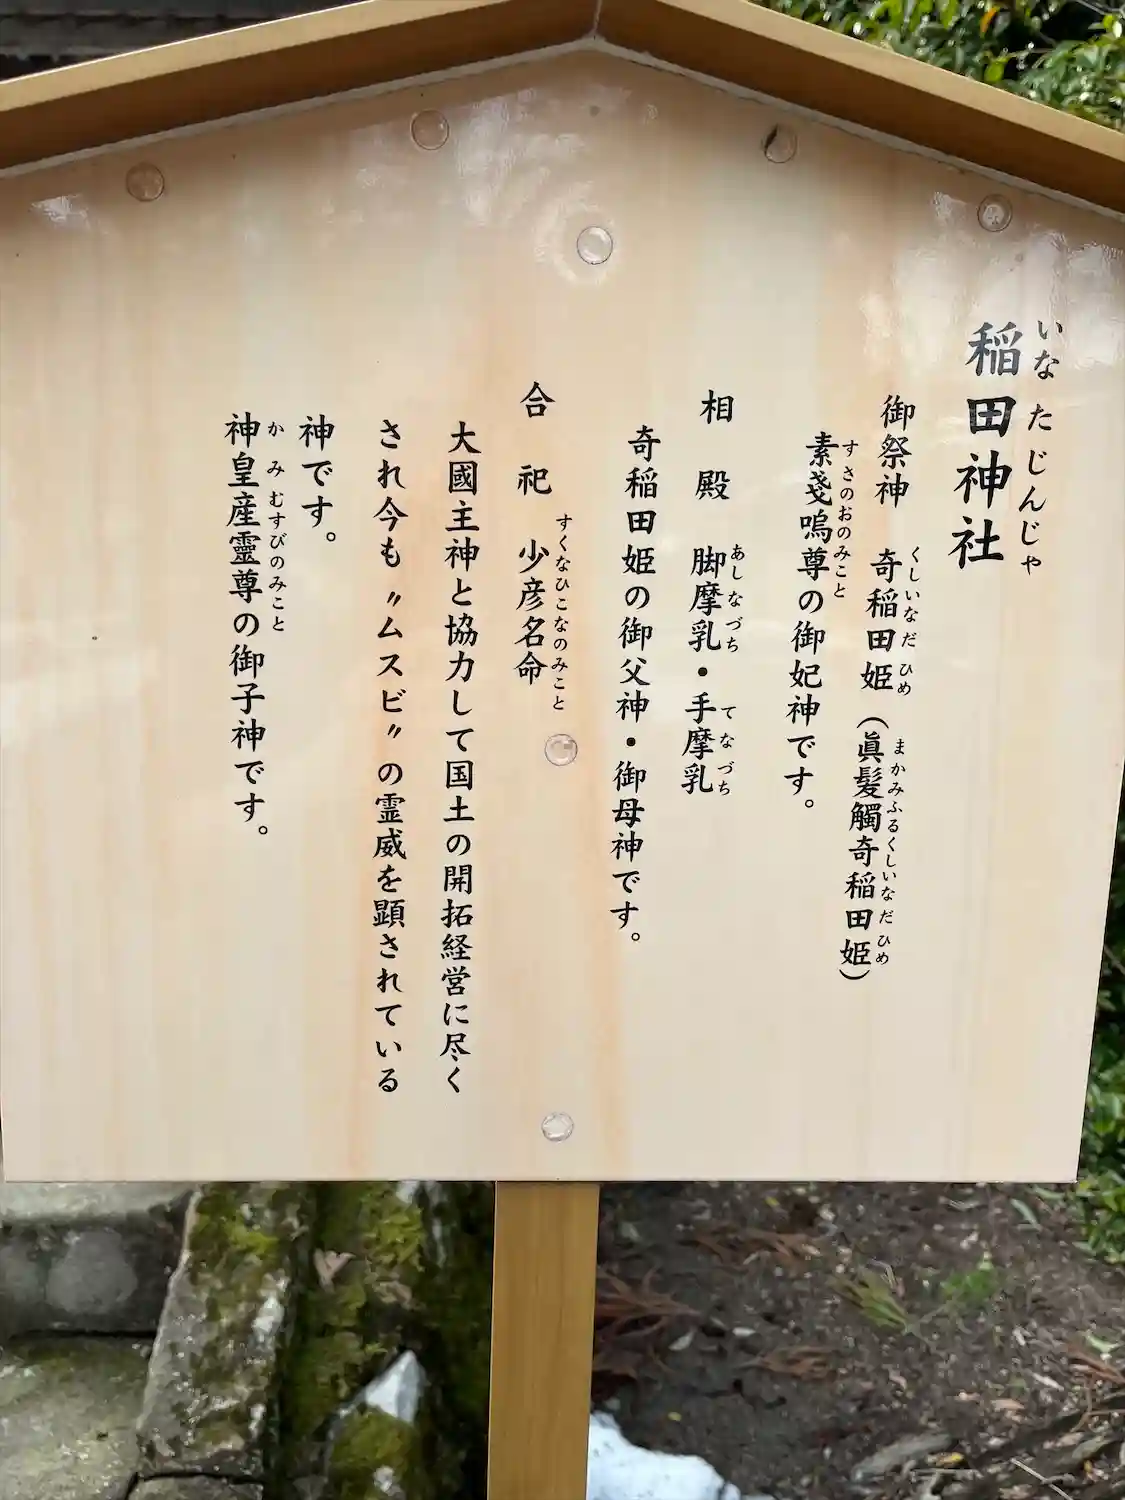 稲田神社
いなたじんじゃ
御祭神 奇稲田姫(眞髪觸奇稲田姫)
くしいなだひめ まかみふるくしいなだひめ
素戔嗚尊の御妃神です。
すさのおのみこと
相殿 脚摩乳・手摩乳
あしなづち てなづち
奇稲田姫の御父神・御母神です。
合祀 少彦名命
すくなひこなのみこと
大國主神と協力して国土の開拓経営に尽く
され今も〝ムスビ〟の霊威を顕されている
神です。
神皇産靈尊の御子神です。
かみむすびのみこと